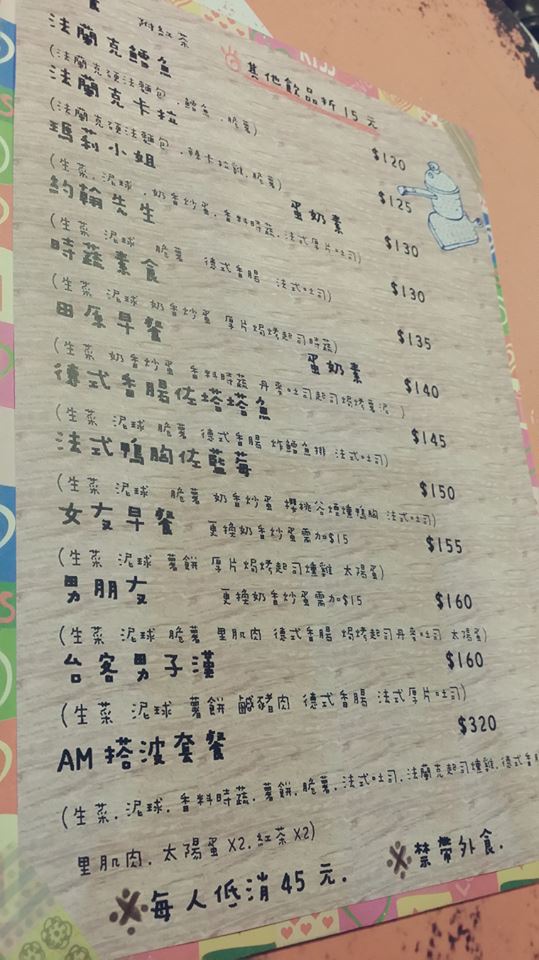 附紅茶
其他飲品折15元
法蘭克鱈魚 $120
(法蘭克硬法麵包,鱈魚,脆薯)
法蘭克卡拉 $125
(法蘭克硬法麵包,辣卡拉雞,脆薯)
瑪莉小姐 蛋奶素 $130
(生菜,泥球,奶香炒蛋,香料時蔬,法式厚片吐司)
約翰先生 $130
(生菜 泥球 脆薯 德式香腸 法式吐司)
時蔬素食 $135
(生菜 泥球 奶香炒蛋 厚片焗烤起司時蔬)
田原早餐 蛋奶素 $140
(生菜 奶香炒蛋 香料時蔬 丹麥吐司起司焗烤薯泥)
德式香腸佐塔塔魚 $145
(生菜 泥球 脆薯 德式香腸 炸鱈魚排 法式吐司)
法式鴨胸佐藍莓 $150
(生菜 泥球 脆薯 奶香炒蛋 櫻桃谷煙燻鴨胸 法式吐司)
女友早餐 更換奶香炒蛋需加$15 $155
(生菜 泥球 薯餅 厚片焗烤起司燻雞 太陽蛋)
男朋友 更換奶香炒蛋需加$15 $160
(生菜 泥球 脆薯 里肌肉 德式香腸 焗烤起司丹麥吐司 太陽蛋)
台客男子漢 $160
(生菜 泥球 薯餅 鹹豬肉 德式香腸 法式厚片吐司)
AM搭波套餐 $320
(生菜,泥球,香料時蔬,薯餅,脆薯,法式吐司,法蘭克起司燻雞,德式香
里肌肉,太陽蛋X2,紅茶X2)
※每人低消45元.
※禁帶外食.